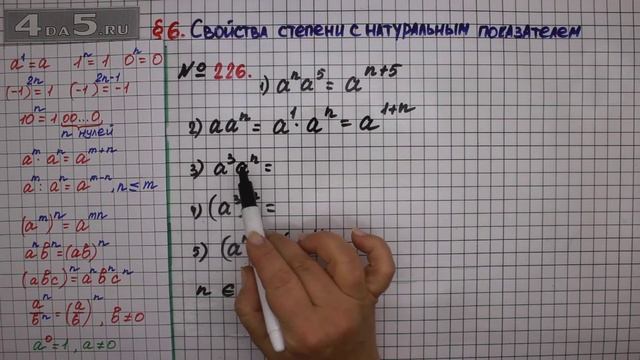 4DA5.RU
§6. Свойства степени с натуральным показателем
a¹=a 1ⁿ=1 0ⁿ=0
(-1)²ⁿ=1 (-1)²ⁿ⁻¹=-1
10ⁿ=100...0,
n нулей
aᵐ·aⁿ=aᵐ⁺ⁿ
aᵐ:aⁿ=aᵐ⁻ⁿ, n≤m
(aᵐ)ⁿ=aᵐⁿ
aⁿbⁿ=(ab)ⁿ
(abc)ⁿ=aⁿbⁿcⁿ
aⁿ/bⁿ=(a/b)ⁿ, b≠0
a⁰=1, a≠0
№ 226. 1) aⁿa⁵=aⁿ⁺⁵
2) aaⁿ=a¹·aⁿ=a¹⁺ⁿ
3) a³aⁿ=
4) (a³
5) (a
n ∈